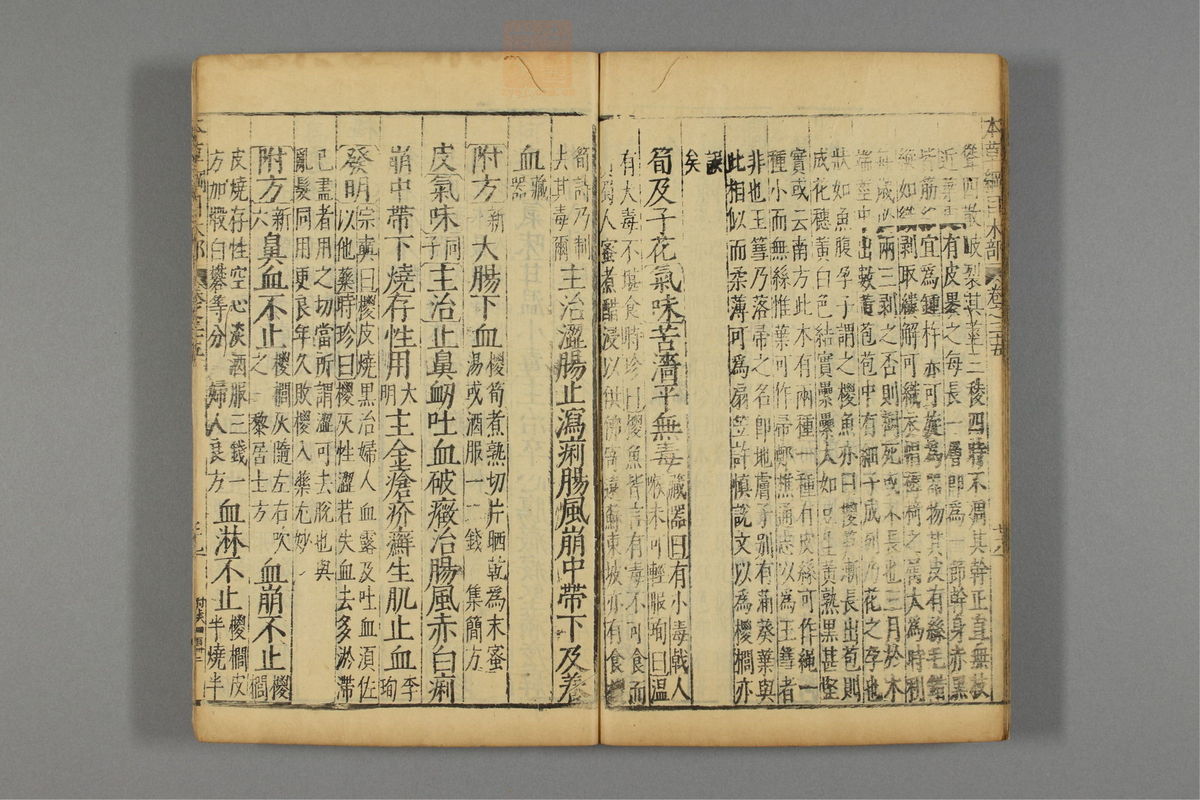 本草綱目木部 卷之三十五
聳而散歧裂其莖三稜四時不凋其幹正直無枝
近葉處有皮裹之每長一層即為一節幹身赤黑
皆筋絡宜為鍾杵亦可旋為器物其皮有絲毛錯
縱如織剥取縷解可織衣帽褥椅之屬大為時利
每歲必兩三剥之否則樹死或不長也三月於木
端莖中出數黄苞苞中有細子成列乃花之孕也
狀如魚腹孕子謂之椶魚亦曰椶筍漸長出苞則
成花穗黄白色結實纍纍大如豆生黄熟黑甚堅
實或云南方此木有兩種一種有皮絲可作繩一
種小而無絲惟葉可作帚鄭樵通志以為王篲者
非也王篲乃落帚之名即地膚子別有蒲葵葉與
此相似而柔薄可為扇笠許慎説文以為椶櫚亦
誤
矣
筍及子花氣味苦濇平無毒藏器曰有小毒戟人喉未可輕服珣曰温
有大毒不堪食時珍曰椶魚皆言有毒不可食而
蜀人蜜煮醋浸以供佛寄遠蘇東坡亦有食
筍詩乃制去其毒爾主治澀腸止瀉痢腸風崩中帶下及養
血藏器
附方新一大腸下血椶筍煮熟切片晒乾為末蜜湯或酒服一二錢 集簡方
皮氣味同子主治止鼻衂吐血破癥治腸風赤白痢
崩中帶下燒存性用大明主金瘡疥癬生肌止血李珣
發明宗奭曰椶皮燒黑治婦人血露及吐血須佐以他藥時珍曰椶灰性澀若失血去多瘀滯
已盡者用之切當所謂澀可去脫也與亂髮同用更良年久敗椶入藥尤妙
附方新六鼻血不止椶櫚灰隨左右吹之 黎居士方血崩不止椶櫚
皮燒存性空心淡酒服三錢一方加煆白礬等分 婦人良方血淋不止椶櫚皮半燒半
本草綱目木部 卷之三十五